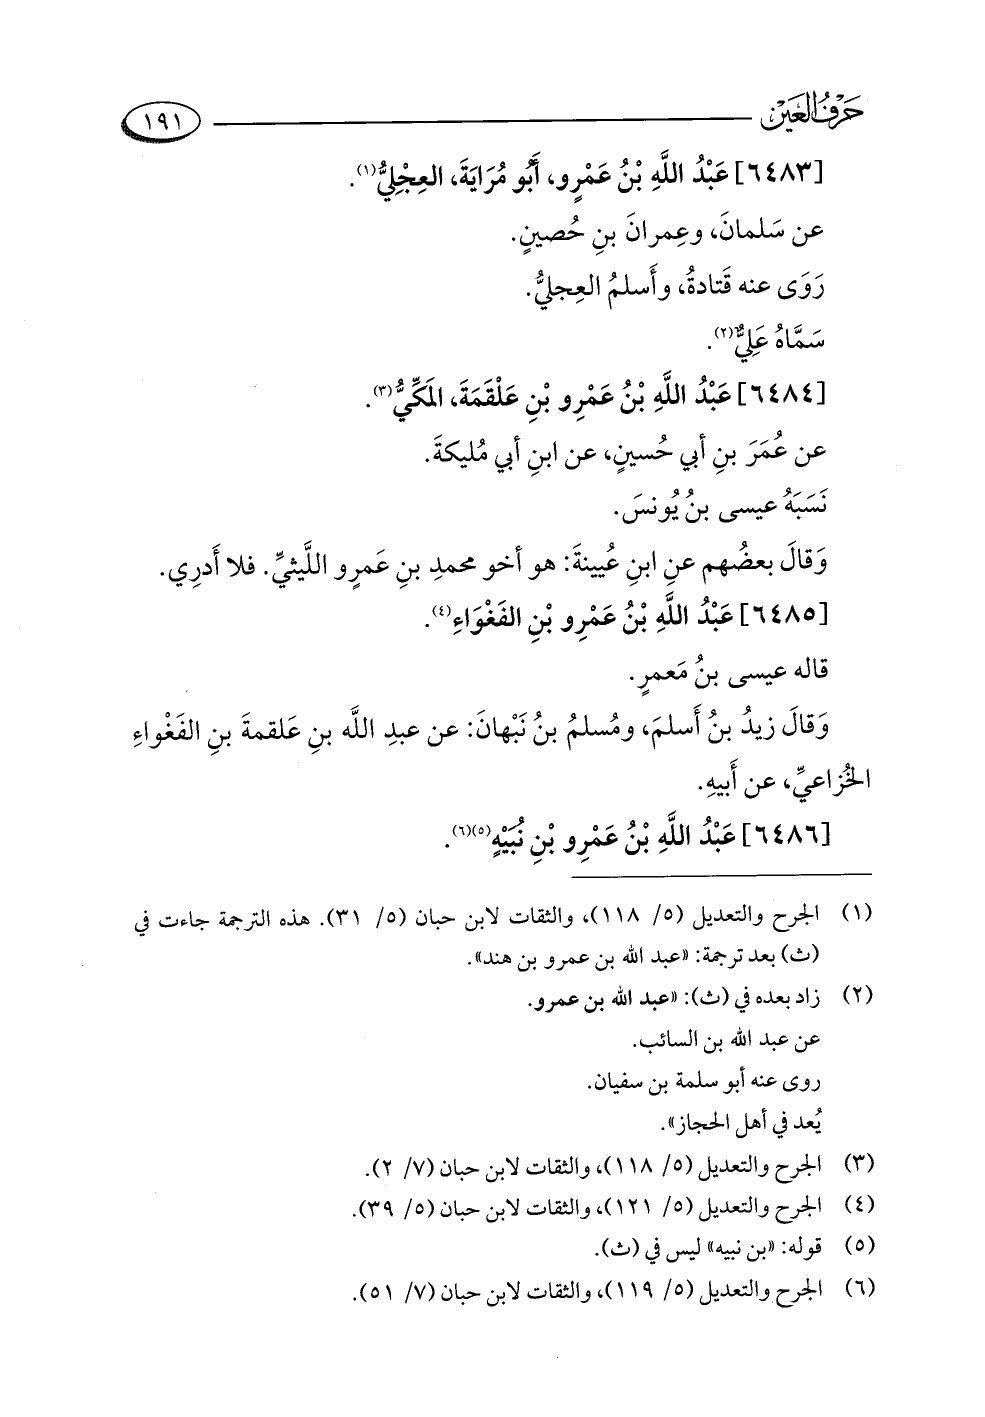 حَرْفُ العَيْن
١٩١
[٦٤٨٣] عَبْدُ اللَّهِ بْنُ عَمْرٍو، أَبُو مُرَايَةَ، العِجْلِيُّ(١).
عن سَلمانَ، وعِمرانَ بنِ حُصينٍ.
رَوَى عنه قَتادةُ، وأَسلمُ العِجليُّ.
سَمَّاهُ عَلِيٌّ(٢).
[٦٤٨٤] عَبْدُ اللَّهِ بْنُ عَمْرِو بْنِ عَلْقَمَةَ، المَكِّيُّ(٣).
عن عُمَرَ بنِ أبي حُسينٍ، عن ابنِ أبي مُليكةَ.
نَسَبَهُ عيسى بنُ يُونسَ.
وَقالَ بعضُهم عنِ ابنِ عُيينةَ: هو أخو محمدِ بنِ عَمرٍو اللَّيثيِّ. فلا أَدرِي.
[٦٤٨٥] عَبْدُ اللَّهِ بْنُ عَمْرِو بْنِ الفَغْوَاءِ(٤).
قاله عيسى بنُ مَعمرٍ.
وَقالَ زيدُ بنُ أَسلمَ، ومُسلمُ بنُ نَبْهانَ: عن عبدِ اللَّه بنِ عَلقمةَ بنِ الفَغْواءِ
الخُزاعيِّ، عن أَبيهِ.
[٦٤٨٦] عَبْدُ اللَّهِ بْنُ عَمْرِو بْنِ نُبَيْهٍ(٥)(٦).
(١) الجرح والتعديل (٥/ ١١٨)، والثقات لابن حبان (٥/ ٣١). هذه الترجمة جاءت في
(ث) بعد ترجمة: «عبد الله بن عمرو بن هند».
(٢) زاد بعده في (ث): «عبد الله بن عمرو.
عن عبد الله بن السائب.
روى عنه أبو سلمة بن سفيان.
يُعد في أهل الحجاز».
(٣) الجرح والتعديل (٥/ ١١٨)، والثقات لابن حبان (٧/ ٢).
(٤) الجرح والتعديل (٥/ ١٢١)، والثقات لابن حبان (٥/ ٣٩).
(٥) قوله: «بن نبيه» ليس في (ث).
(٦) الجرح والتعديل (٥/ ١١٩)، والثقات لابن حبان (٧/ ٥١).